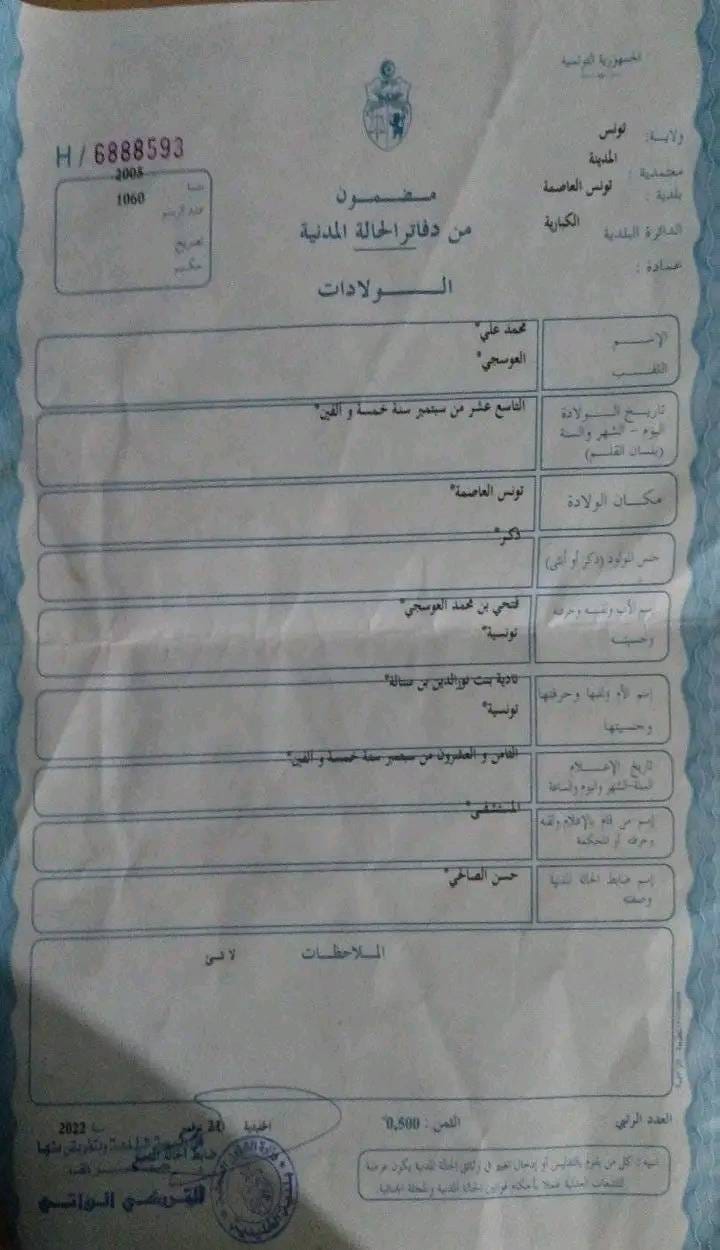 الجمهورية التونسية
ولاية: تونس
معتمدية: المدينة
بلدية: تونس العاصمة
الدائرة البلدية الكبارية
عمادة:
H/6888593
سنة 2005
عدد الرسم 1060
تصريح
حكم
مضمون
من دفاتر الحالة المدنية
الولادات
الإسم محمد علي*
اللقب العوسجي*
تاريخ الولادة التاسع عشر من سبتمبر سنة خمسة و ألفين*
اليوم - الشهر والسنة
(بلسان القلم)
مكان الولادة تونس العاصمة*
جنس المولود (ذكر أو أنثى) ذكر*
إسم الأب ولقبه وحرفته فتحي بن محمد العوسجي*
وجنسيته تونسية*
إسم الأم ولقبها وحرفتها نادية بنت نورالدين بن
وجنسيتها تونسية*
تاريخ الإعلام الثامن و العشرون من سبتمبر سنة خمسة و ألفين*
السنة-الشهر واليوم والساعة
إسم من قام بالإعلام ولقبه المستشفى*
وحرفته أو المحكمة
إسم ضابط الحالة المدنية حسن الصالحي*
وصفته
الملاحظات لا شئ
العدد الرتبي الثمن: 0,500*
24 نوفمبر سنة 2022
ضابط الحالة المدنية
تنبيه: كل من يقوم بالتدليس أو إدخال تغيير في وثائق الحالة المدنية يكون عرضة
للتتبعات العدلية عملا بأحكام قوانين الحالة المدنية والمجلة الجنائية